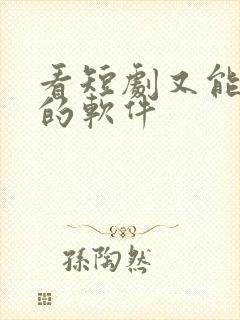 看短劇又能
的軟件
孫陶然